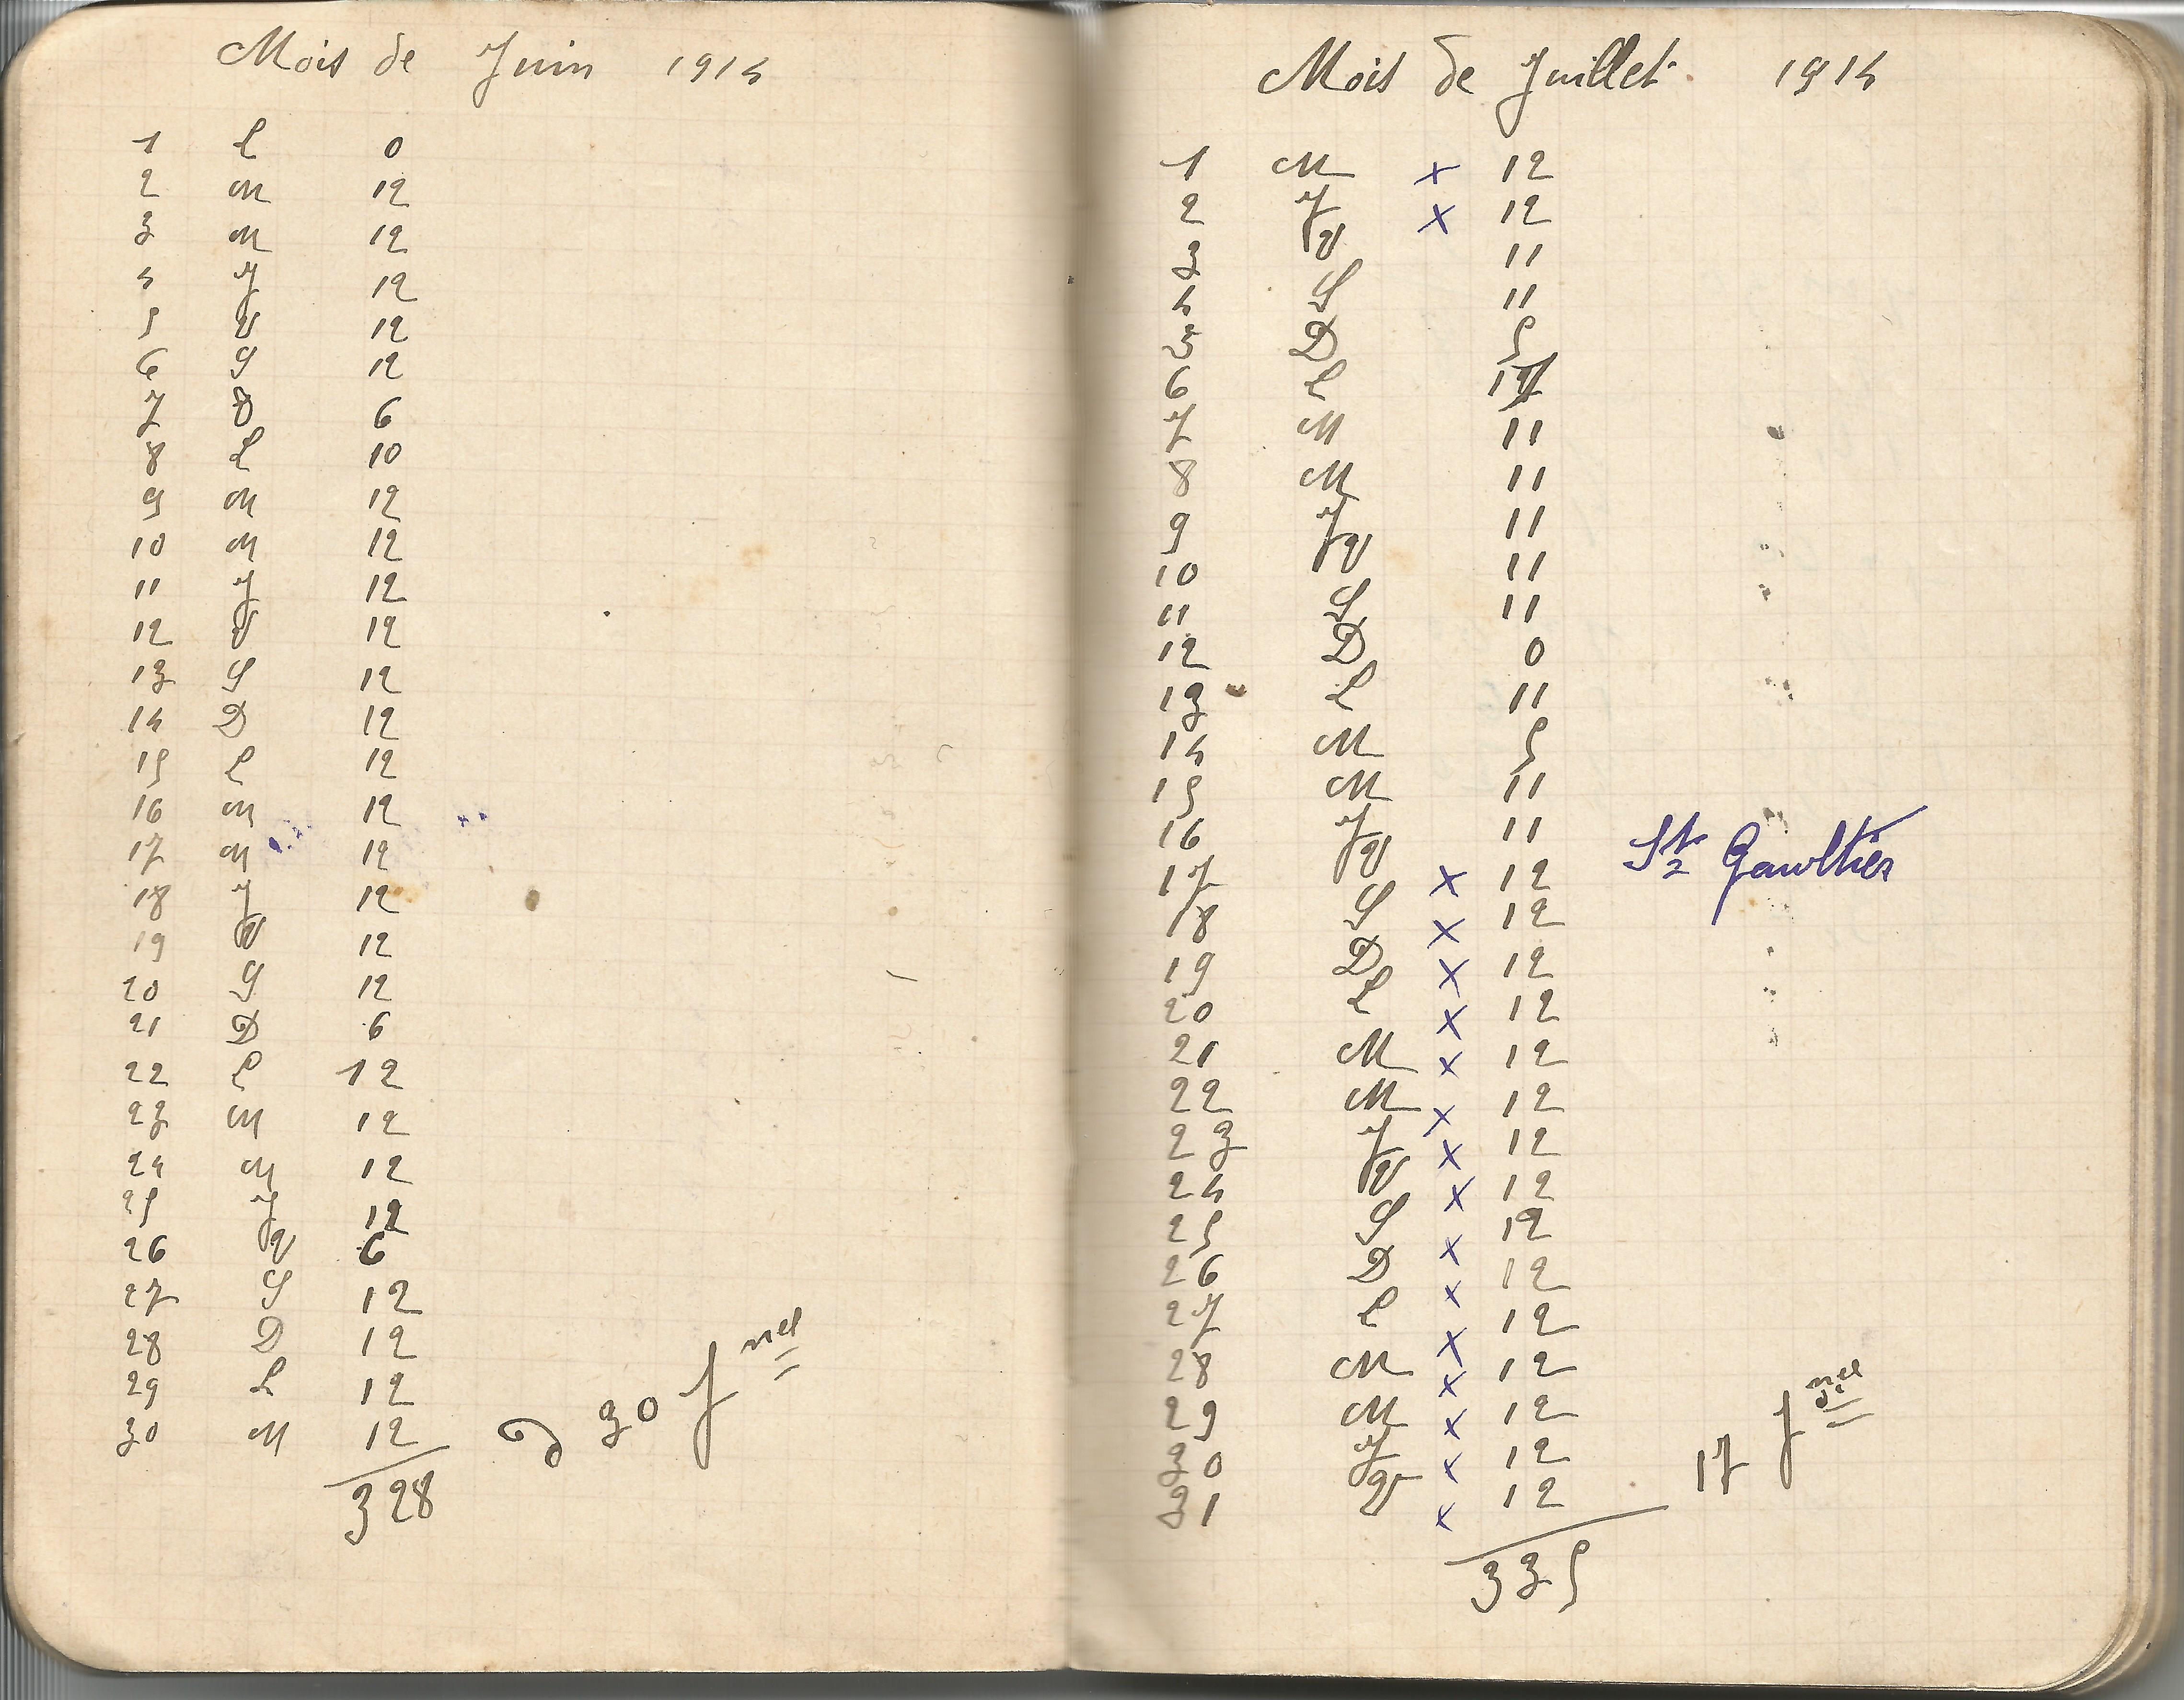 Mois de Juin 1914
1 L 0
2 M 12
3 M 12
4 J 12
5 V 12
6 S 12
7 D 6
8 L 10
9 M 12
10 M 12
11 J 12
12 V 12
13 S 12
14 D 12
15 L 12
16 M 12
17 M 12
18 J 12
19 V 12
20 S 12
21 D 6
22 L 12
23 M 12
24 M 12
25 J 12
26 V 6
27 S 12
28 D 12
29 L 12
30 M 12 30 J
328
Mois de Juillet 1914
1 M x 12
2 J x 12
3 V 11
4 S 11
5 D 5
6 L 11
7 M 11
8 M 11
9 J 11
10 V 11
11 S 11
12 D 0
13 L 11
14 M 5
15 M 11
16 J 11
17 V x 12 St Gaultier
18 S x 12
19 D x 12
20 L x 12
21 M x 12
22 M x 12
23 J x 12
24 V x 12
25 S x 12
26 D x 12
27 L x 12
28 M x 12
29 M x 12
30 J x 12 17 J
31 V x 12
335